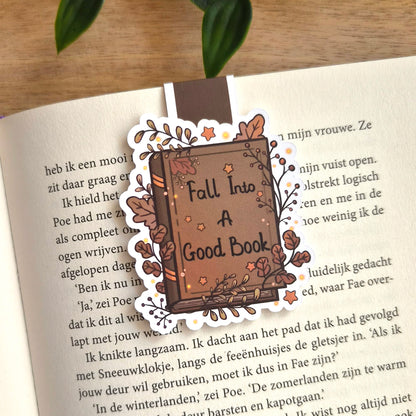 Fall Into
A
Good Book
heb ik een mooi mijn vrouwe. Ze
zit daar graag vuist open.
Ik hield het logisch
Poe had me en me in de
als compleet weinig ik de
ogen wrijven.
afgelopen gedacht
'Ben ik nu waar Fae over-
'Ja,' zei Poe
dat ik dit al
lapt met jouw
Ik knikte langzaam. Ik dacht aan het pad dat ik had gevolgd
met Sneeuwklokje, langs de feeënhuisjes de gletsjer in. 'Als ik
jouw deur wil gebruiken, moet ik dus in Fae zijn?'
'In de winterlanden,' zei Poe. 'De zomerlanden zijn te warm
deur barsten en kapotgaan.'
Ik wist nog altijd niet